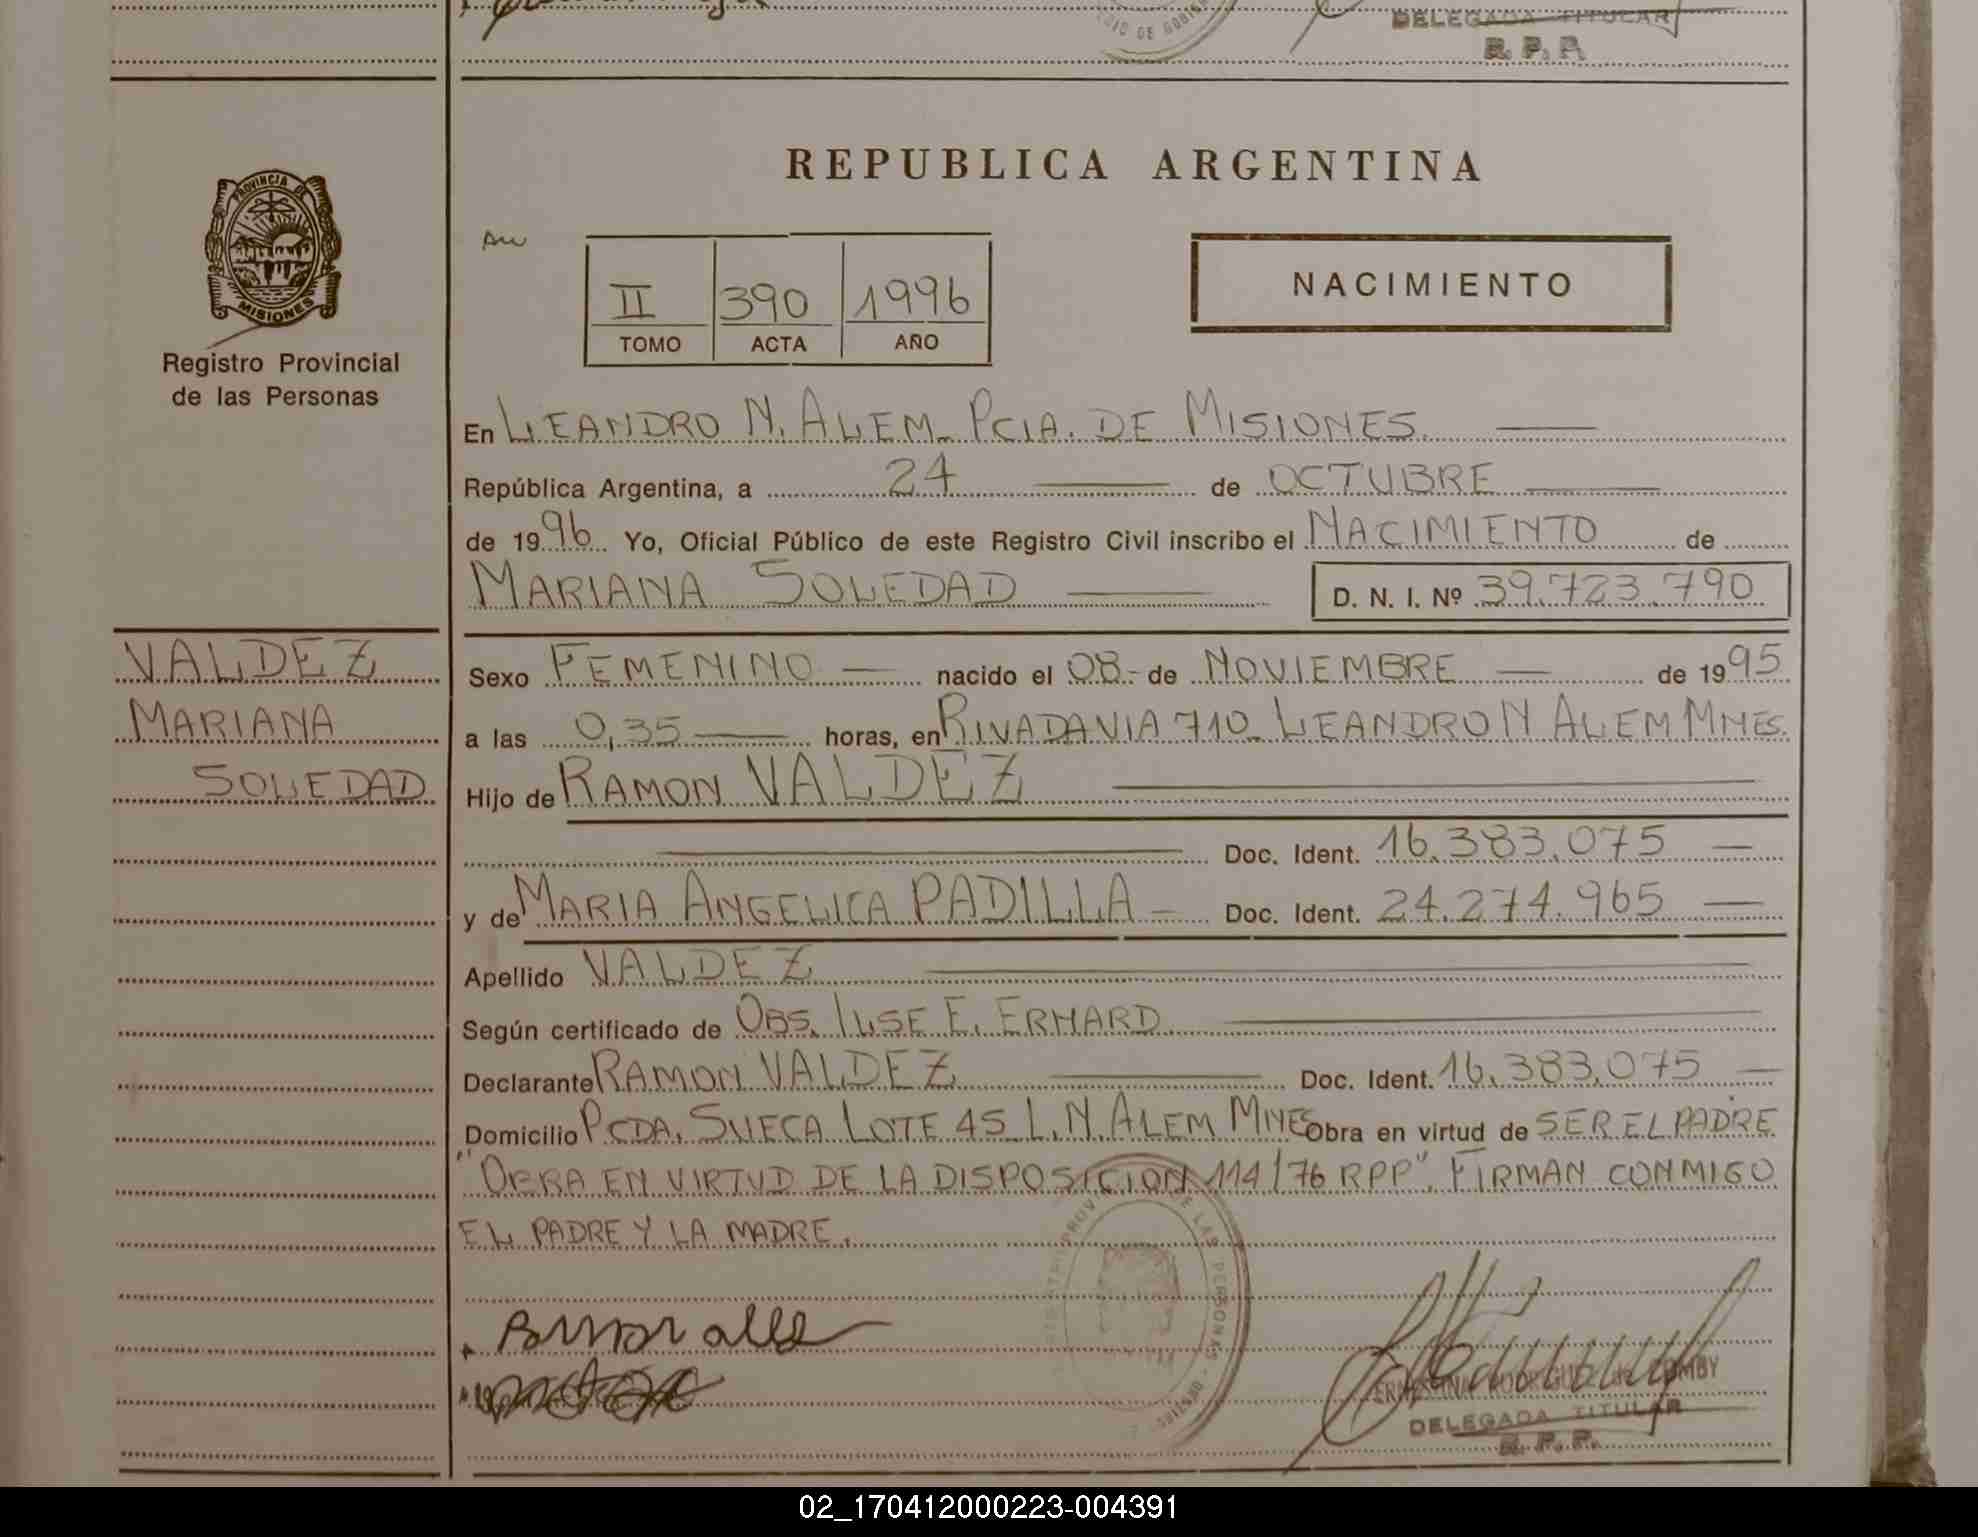 DELEGADA TITULAR
R. P. P.
PROVINCIA DE
MISIONES
Registro Provincial
de las Personas
REPUBLICA ARGENTINA
II 390 1996
TOMO ACTA AÑO
NACIMIENTO
En LEANDRO N. ALEM PCIA. DE MISIONES.
República Argentina, a 24 de OCTUBRE
de 1996 Yo, Oficial Público de este Registro Civil inscribo el NACIMIENTO de
MARIANA SOLEDAD D. N. I. Nº 39.723.790
VALDEZ
MARIANA
SOLEDAD
Sexo FEMENINO nacido el 08 de NOVIEMBRE de 1995
a las 0,35 horas, en RIVADAVIA 710 LEANDRO N ALEM MNES.
Hijo de RAMON VALDEZ
Doc. Ident. 16.383.075
y de MARIA ANGELICA PADILLA Doc. Ident. 24.274.965
Apellido VALDEZ
Según certificado de OBS. ILSE E. ERHARD
Declarante RAMON VALDEZ Doc. Ident. 16.383.075
Domicilio PCDA. SUECA LOTE 45 L.N. ALEM MNES Obra en virtud de SER EL PADRE
"OBRA EN VIRTUD DE LA DISPOSICION 114/76 RPP". FIRMAN CONMIGO
EL PADRE Y LA MADRE.
DELEGADA TITULAR
R. P. P.
02_170412000223-004391